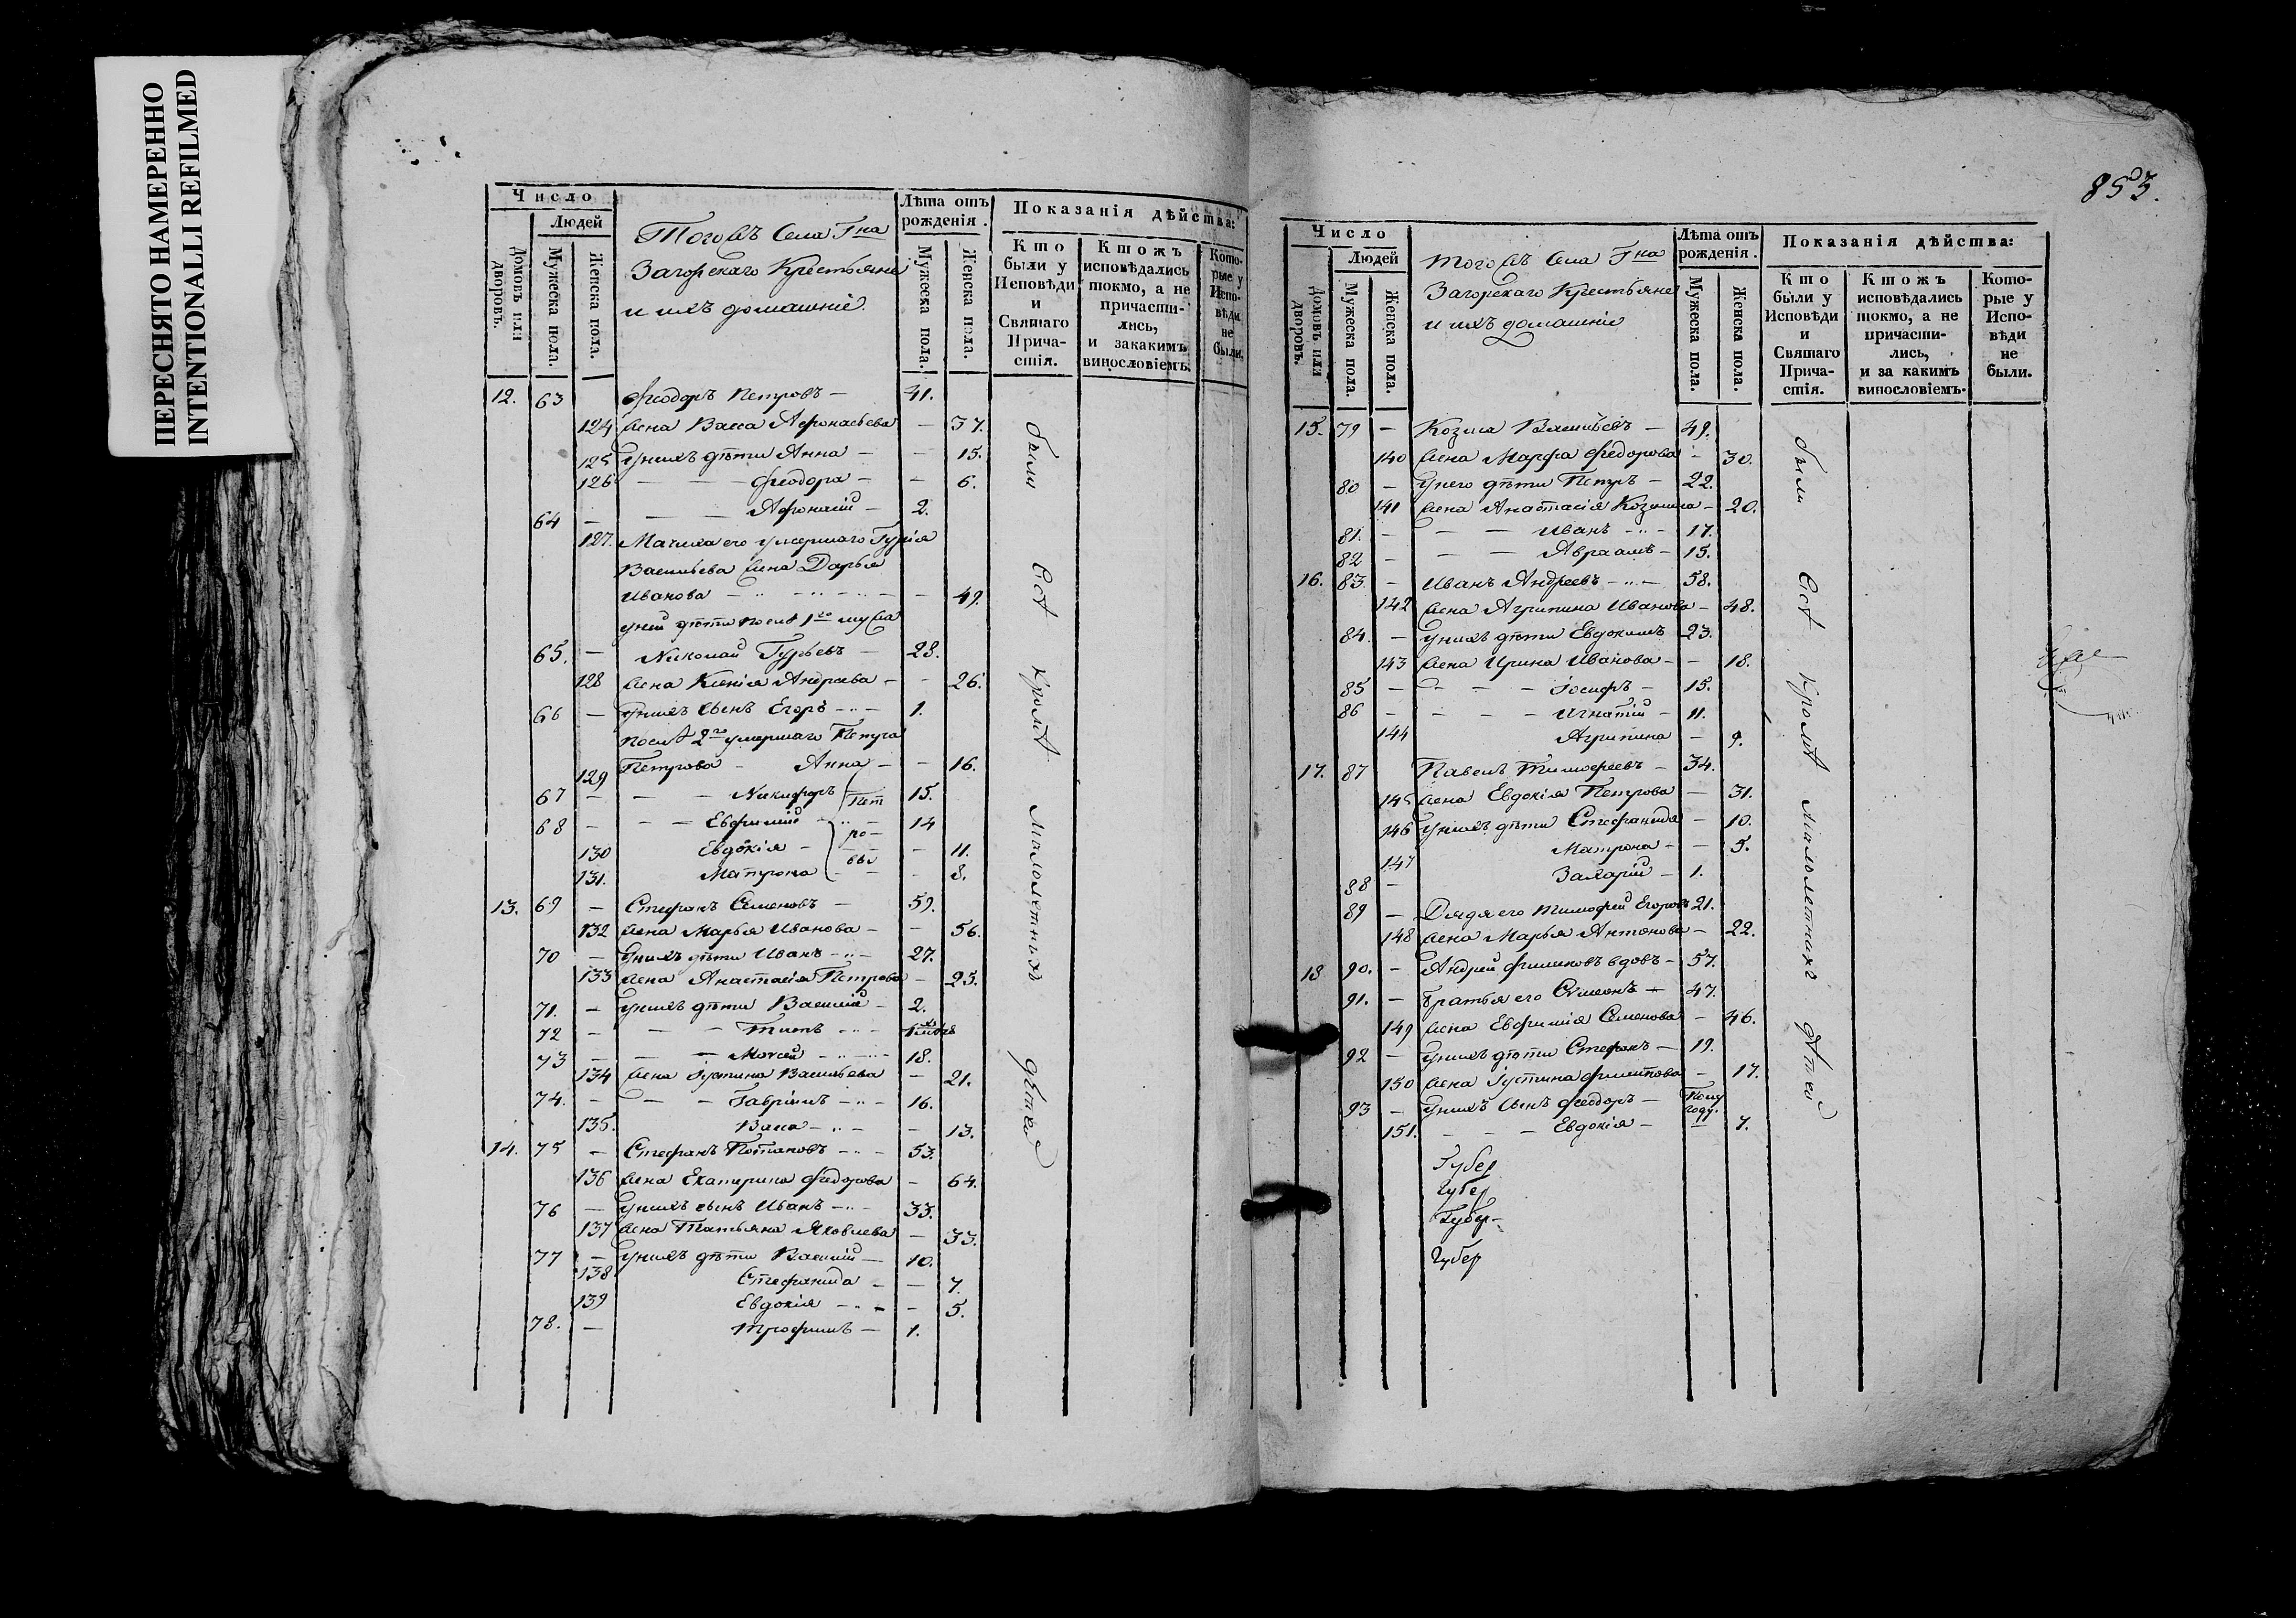 ПЕРЕСНЯТО НАМЕРЕННО
INTENTIONALLI REFILMED
Число
Людей
Домовъ или дворовъ.
Мужеска пола.
Женска пола.
Тогожъ Села Гна
Загорскаго Крестьяне
и ихъ домашніе.
Лѣта отъ рожденія.
Мужеска пола.
Женска пола.
Показанія дѣйства:
Кто были у Исповѣди и Святаго Прича-стія.
Ктожъ исповѣдались токмо, а не причасти-лись, и закакимъ винословіемъ.
Кото-рые у Испо-вѣди не были.
12. 63 Феодоръ Петровъ — 41.
124 Жена Васса Афонасьева — 37.
125 У нихъ дѣти Анна — — 15.
126 — — Феодора — — 6.
64 — — Афонасій — 2.
127. Мачиха его умершаго Гурія
Васильева Жена Дарья
Иванова — — 49.
у ней дѣти посля 1го мужа
65. — Николай Гурьевъ — 28.
128 Жена Ксенія Андреева — — 26.
66 — У нихъ Сынъ Егоръ — 1.
посля 2го умершаго Петра
129 Петрова — Анна — — 16.
67 — — — Никифоръ Пет 15.
68 — — — Евфимій ро— 14
130 Евдокія — вы — 11.
131. Матрона — — 8.
13. 69 — Стефанъ Семеновъ — 59.
132 Жена Марья Иванова — — 56.
70 — У нихъ дѣти Иванъ — 27.
133 Жена Анастасія Петрова — 25.
71. — У нихъ дѣти Василій — 2.
72 — — — Титъ —
73 — — — Моисей — 18.
134 Жена Іустина Васильева — 21.
74. — — — Гавріилъ — 16.
135. Васса — — 13.
14. 75 — Стефанъ Потаповъ — 53.
136 Жена Екатерина Федорова — 64.
76 — У нихъ сынъ Иванъ — 33.
137 Жена Татьяна Яковлева — 33.
77 — У нихъ дѣти Василій — 10.
138 Стефанида — — 7.
139 Евдокія — — 5.
78. — Трофимъ — 1.
были Всѣ кромѣ малолѣтнихъ дѣтей
853.
Число
Людей
Домовъ или дворовъ.
Мужеска пола.
Женска пола.
Тогожъ Села Гна
Загорскаго Крестьяне
и ихъ домашніе
Лѣта отъ рожденія.
Мужеска пола.
Женска пола.
Показанія дѣйства:
Кто были у Исповѣди и Святаго Прича-стія.
Ктожъ исповѣдались токмо, а не причасти-лись, и за какимъ винословіемъ.
Кото-рые у Испо-вѣди не были.
15. 79 — Козма Васильевъ — 49.
140 Жена Марфа Федорова — 30.
80 — У него дѣти Петръ — 22.
141 Жена Анастасія Козмина — 20.
81. — — — Иванъ — 17.
82 — — — Авраамъ — 15.
16. 83 — Иванъ Андреевъ — 58.
142 Жена Агрипина Иванова — 48.
84. — У нихъ дѣти Евдокимъ 23.
143 Жена Ирина Иванова — — 18.
85 — — — — Іосифъ — 15.
86 — — — — Игнатій — 11.
144 Агрипина — 9.
17. 87 Павелъ Тимофеевъ — 34.
145 Жена Евдокія Петрова — 31.
146 У нихъ дѣти Стефанида — 10.
147 Матрона — — 5.
88 — Захарій — 1.
89 — Дядя его Тимофей Егоровъ 21.
148 Жена Марья Антонова — 22.
18 90. — Андрей Филиповъ вдовъ — 57.
91. — Братья его Симеонъ — 47.
149 Жена Евфимія Семенова — 46.
92 — У нихъ дѣти Стефанъ — 19.
150 Жена Іустина Филипова — 17.
93 — У нихъ Сынъ Феодоръ — Полу году.
151. — — — Евдокія — — 7.
Губер
Губер
Губер—
Губер
были Всѣ кромѣ малолѣтнихъ дѣтей